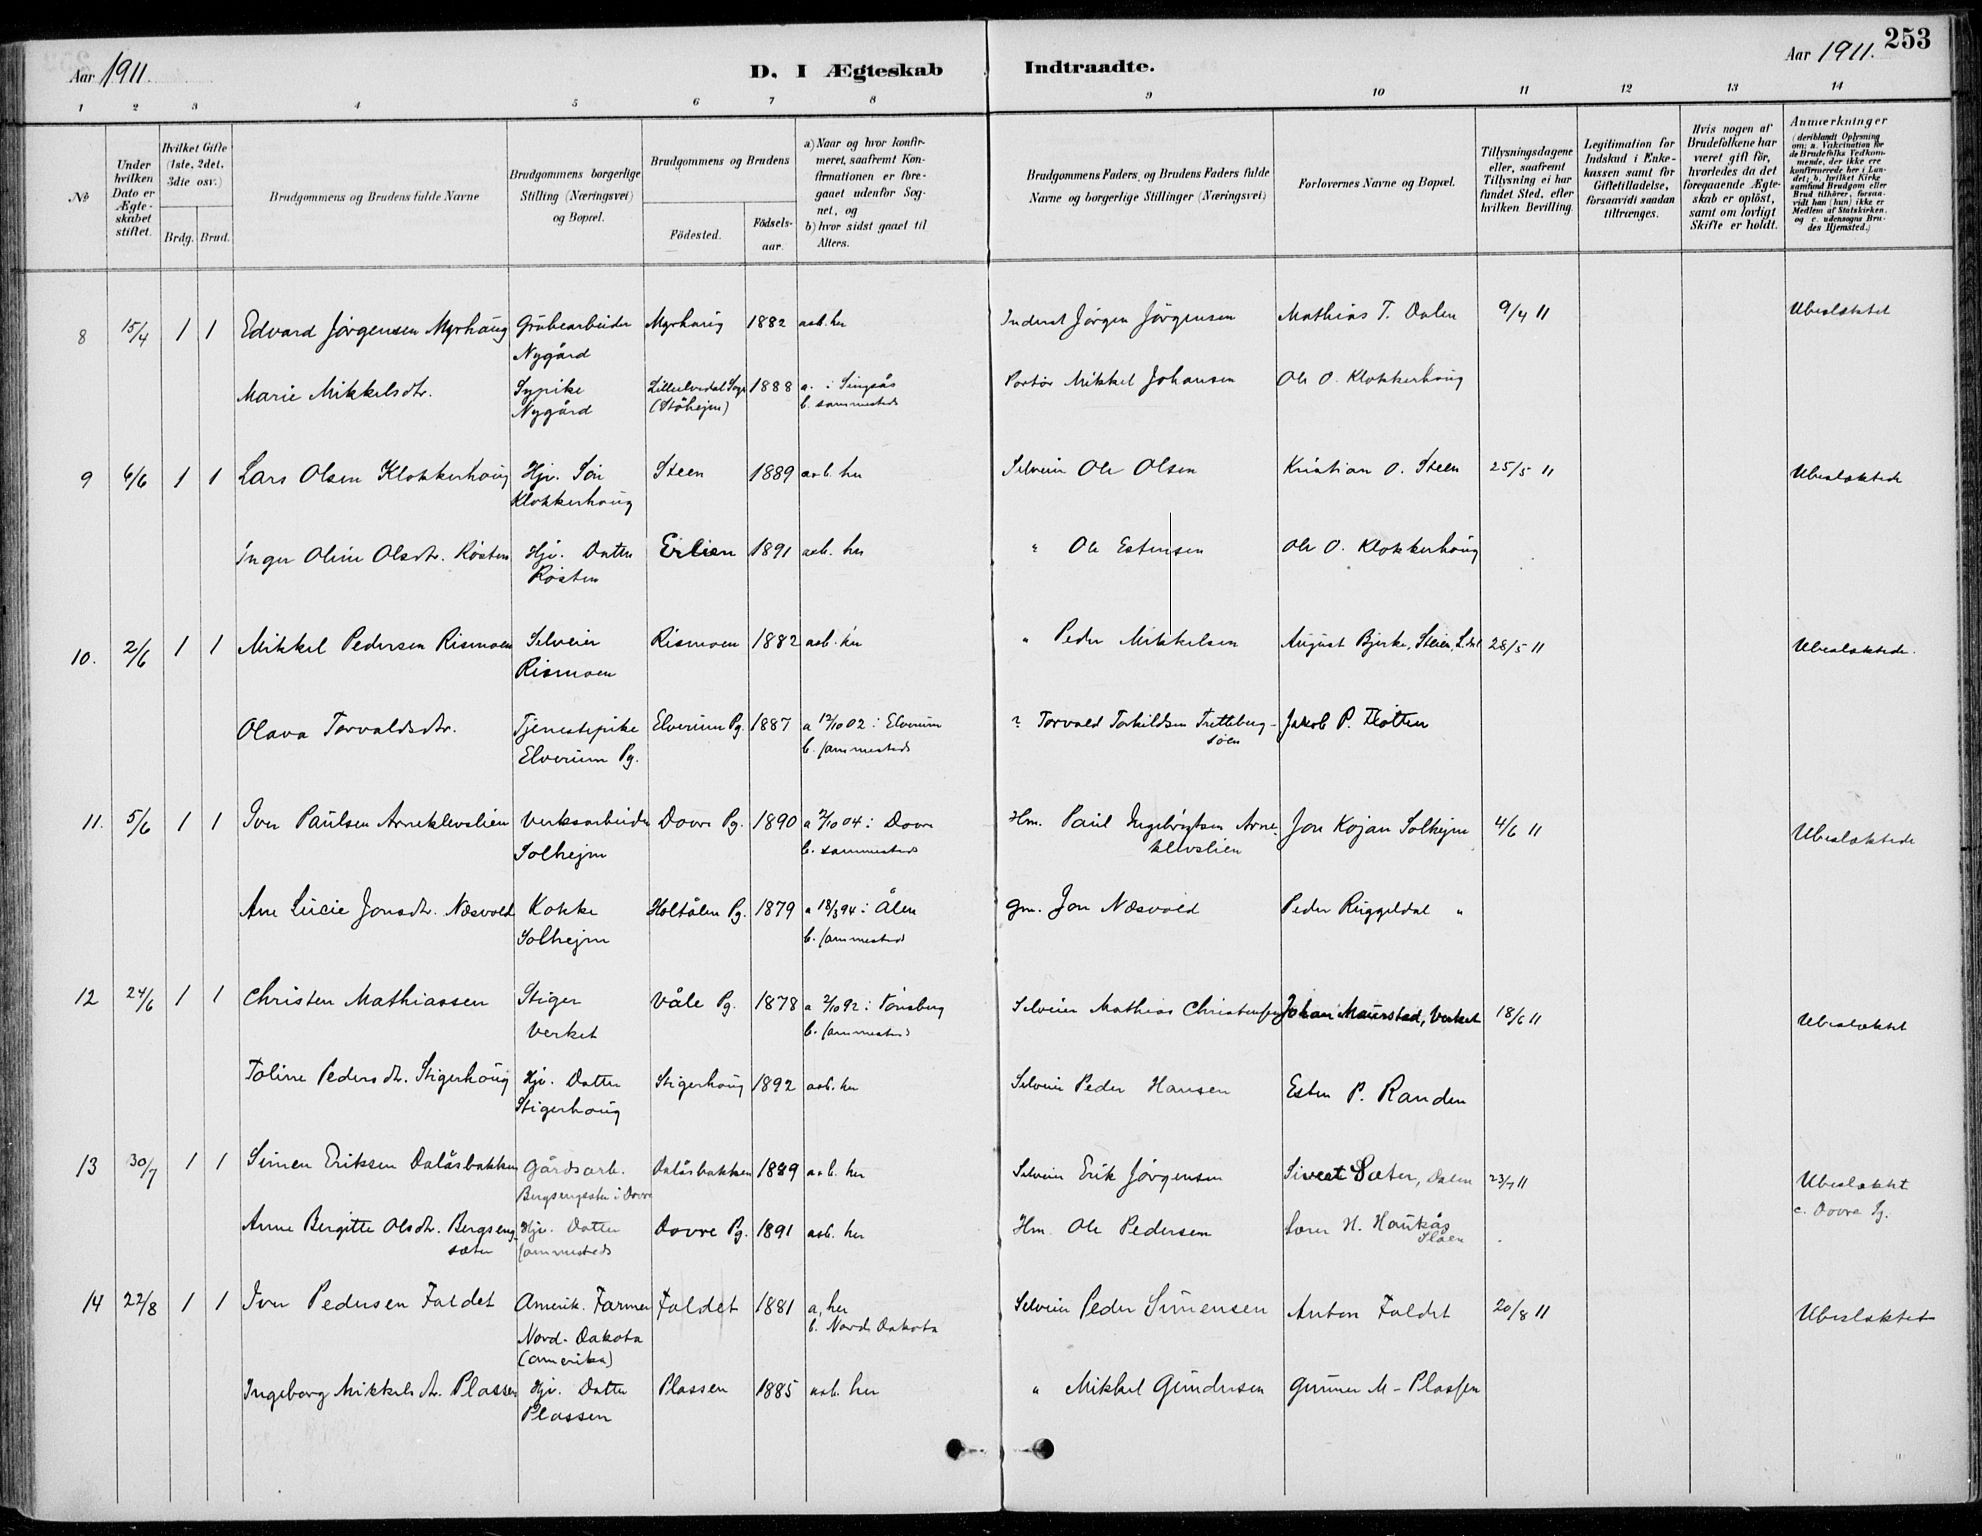 Aar 1911.
D. I Ægteskab
Indtraadte.
Aar 1911.
253
1 2 3 4 5 6 7 8 9 10 11 12 13 14
No
Under hvilken Dato er Ægteskabet stiftet.
Hvilket Gifte (1ste, 2det, 3die osv.)
Brdg. Brud.
Brudgommens og Brudens fulde Navne
Brudgommens borgerlige Stilling (Næringsvei) og Bopæl.
Brudgommens og Brudens
Födested.
Födselsaar.
a) Naar og hvor konfirmeret, saafremt Konfirmationen er foregaaet udenfor Sognet, og
b) hvor sidst gaaet til Alters.
Brudgommens Faders og Brudens Faders fulde Navne og borgerlige Stillinger (Næringsvei)
Forlovernes Navne og Bopæl.
Tillysningsdagene eller, saafremt Tillysning ei har fundet Sted, efter hvilken Bevilling.
Legitimation for Indskud i Enkekassen samt for Giftetilladelse, forsaavidt saadan tiltrænges.
Hvis nogen af Brudefolkene har været gift för, hvorledes da det foregaaende Ægteskab er oplöst, samt om lovligt Skifte er holdt.
Anmærkninger
(deriblandt Oplysning om; a. Vakcination for de Brudefolks Vedkommende, der ikke ere konfirmerede her i Landet; b. hvilket Kirkesamfund Brudgom eller Brud tilhörer, forsaavidt han (hun) ikke er Medlem af Statskirken, og c. udensogns Brudes Hjemsted.)
8 15/4 1 1 Edvard Jørgensen Myrhaug Grubearbeider Myrhaug 1882 aob. her Inderst Jørgen Jørgensen Mathias T. Dalen 9/4 11 Ubeslæktet
Nygård
Marie Mikkelsdtr. Sypike Lilleelvedal Sogn 1888 a. i Singsås Portør Mikkel Johansen Ole O. Klokkerhaug
Nygård (Ståhejm) b. sammesteds
9 6/6 1 1 Lars Olsen Klokkerhaug Hjv. Søn Steen 1889 aob. her Selveier Ole Olsen Kristian O. Steen 25/5 11 Ubeslæktede
Klokkerhaug
Inger Oline Olsdtr. Røsten Hjv. Datter Eilien 1891 aob. her " Ole Estensen Ole O. Klokkerhaug
Røsten
10. 2/6 1 1 Mikkel Pedersen Rismoen Selveier Rismoen 1882 aob. her " Peder Mikkelsen August Bjerke, Steien, L.dal 28/5 11 Ubeslæktede.
Rismoen
Olava Torvaldsdtr. Tjenestepike Elverum Pg. 1887 a 12/10 02 i Elverum ? Torvald Torkildsen Tretteberg- Jakob P. Fløtten
Elverum Pg. b. sammesteds
11. 5/6 1 1 Iver Paulsen Arneklevslien Verksarbeider Dovre Pg. 1890 a 2/10 04 i Dovre Hm. Paul Ingebrigtsen Arne- Jon Kojan Solhejm 4/6 11 Ubeslæktede
Solhejm b. sammesteds klevslien
Ane Lucie Jonsdtr. Næsvold Kokke Holtålen Pg. 1879 a 18/3 94 i Ålen gm. Jon Næsvold Peder Ruggeldal "
Solhejm b. sammesteds
12 24/6 1 1 Christen Mathiassen Stiger Våle Pg. 1878 a 2/10 92 i Tønsberg Selveier Mathias Christensen Johan Maurstad, Verket 18/6 11 Ubeslæktet
Verket b. sammesteds
Toline Pedersdtr. Stigerhaug Hjv. Datter Stigerhaug 1892 aob. her Selveier Peder Hansen Esten P. Randen
Stigerhaug
13 30/7 1 1 Simen Eriksen Dalåsbakken Gårdsarb. Dalåsbakken 1889 aob. her Selveier Erik Jørgensen Sivert Sæter, Dalen 23/7 11 Ubeslæktet
Bergsengsæter i Dovre c. Dovre Pg.
Anne Bergitte Olsdtr. Bergseng- Hjv. Datter Dovre Pg. 1891 aob. her Hm. Ole Pedersen H. Haukås
sæter sammesteds
14 22/8 1 1 Iver Pedersen Faldet Amerik. Farmer Faldet 1881 a, her Selveier Peder Simensen Anton Faldet 20/8 11 Ubeslæktet
Nord-Dakota b. Nord Dakota
(Amerika)
Ingeborg Mikkelsdtr. Plassen Hjv. Datter Plassen 1885 aob. her " Mikkel Gundersen Gunner M. Plassen
Plassen